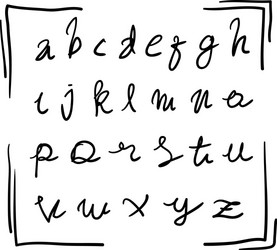 a b c d e f g h
i j k l m n o
p Q r s t u
v w x y z